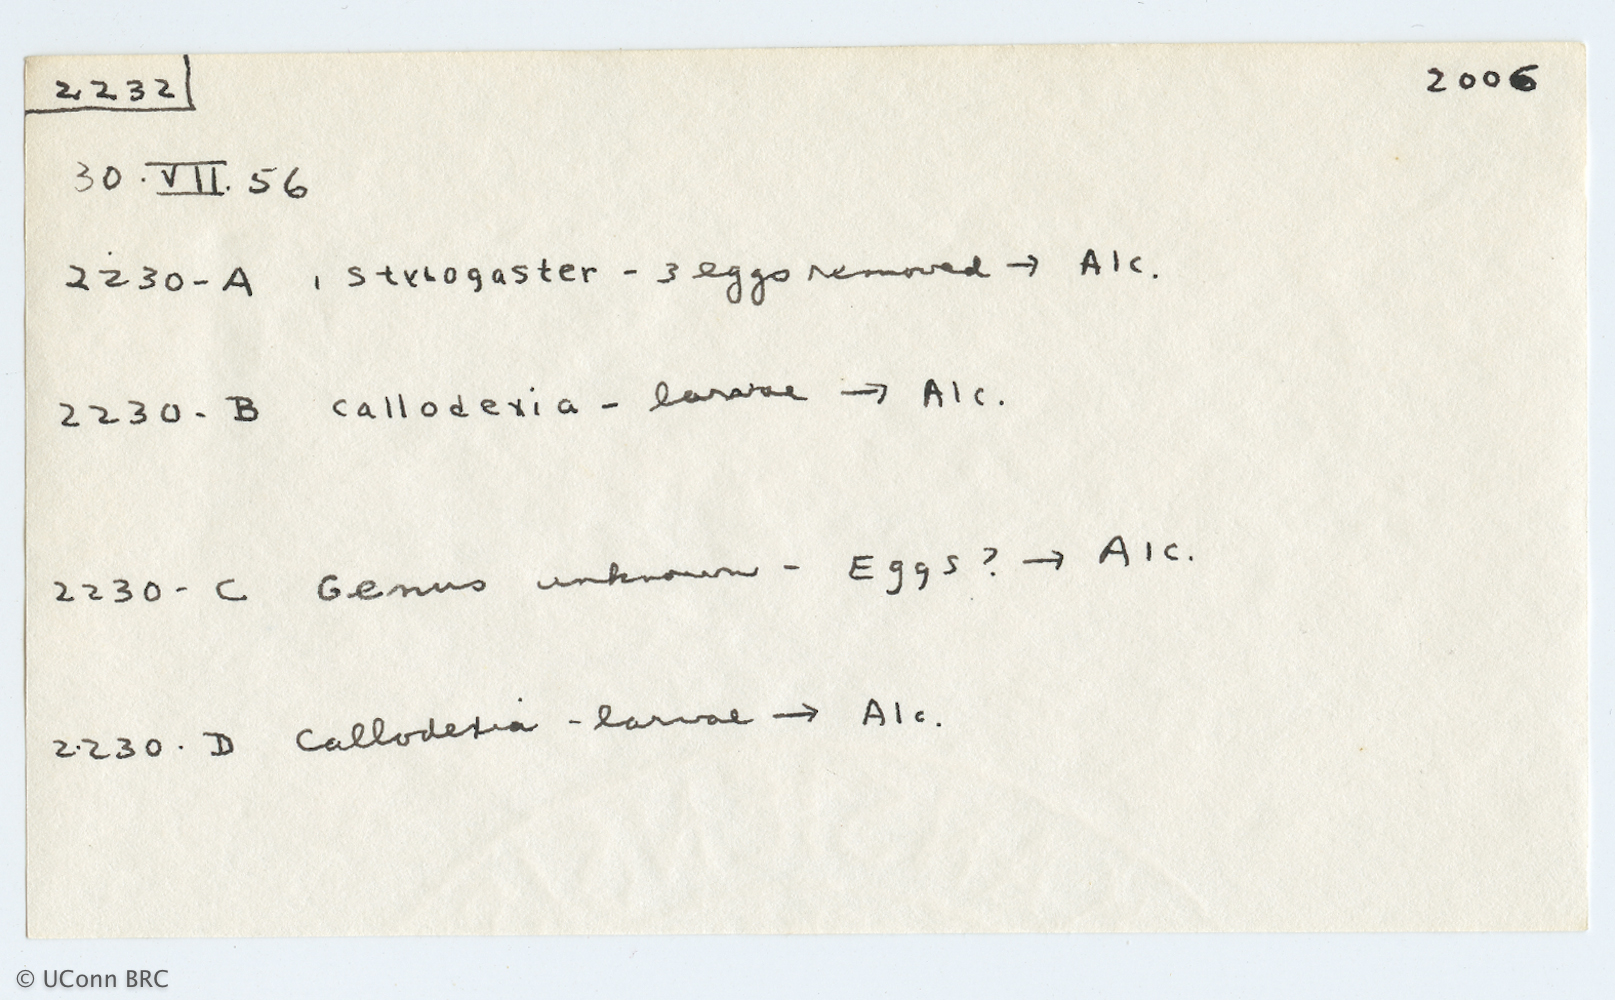 2232
2006
30.VII.56
2230-A , Stylogaster - 3 eggs removed → Alc.
2230-B Callodexia - larvae → Alc.
2230-C Genus unknown - Eggs? → Alc.
2230-D Callodexia - larvae → Alc.
© UConn BRC